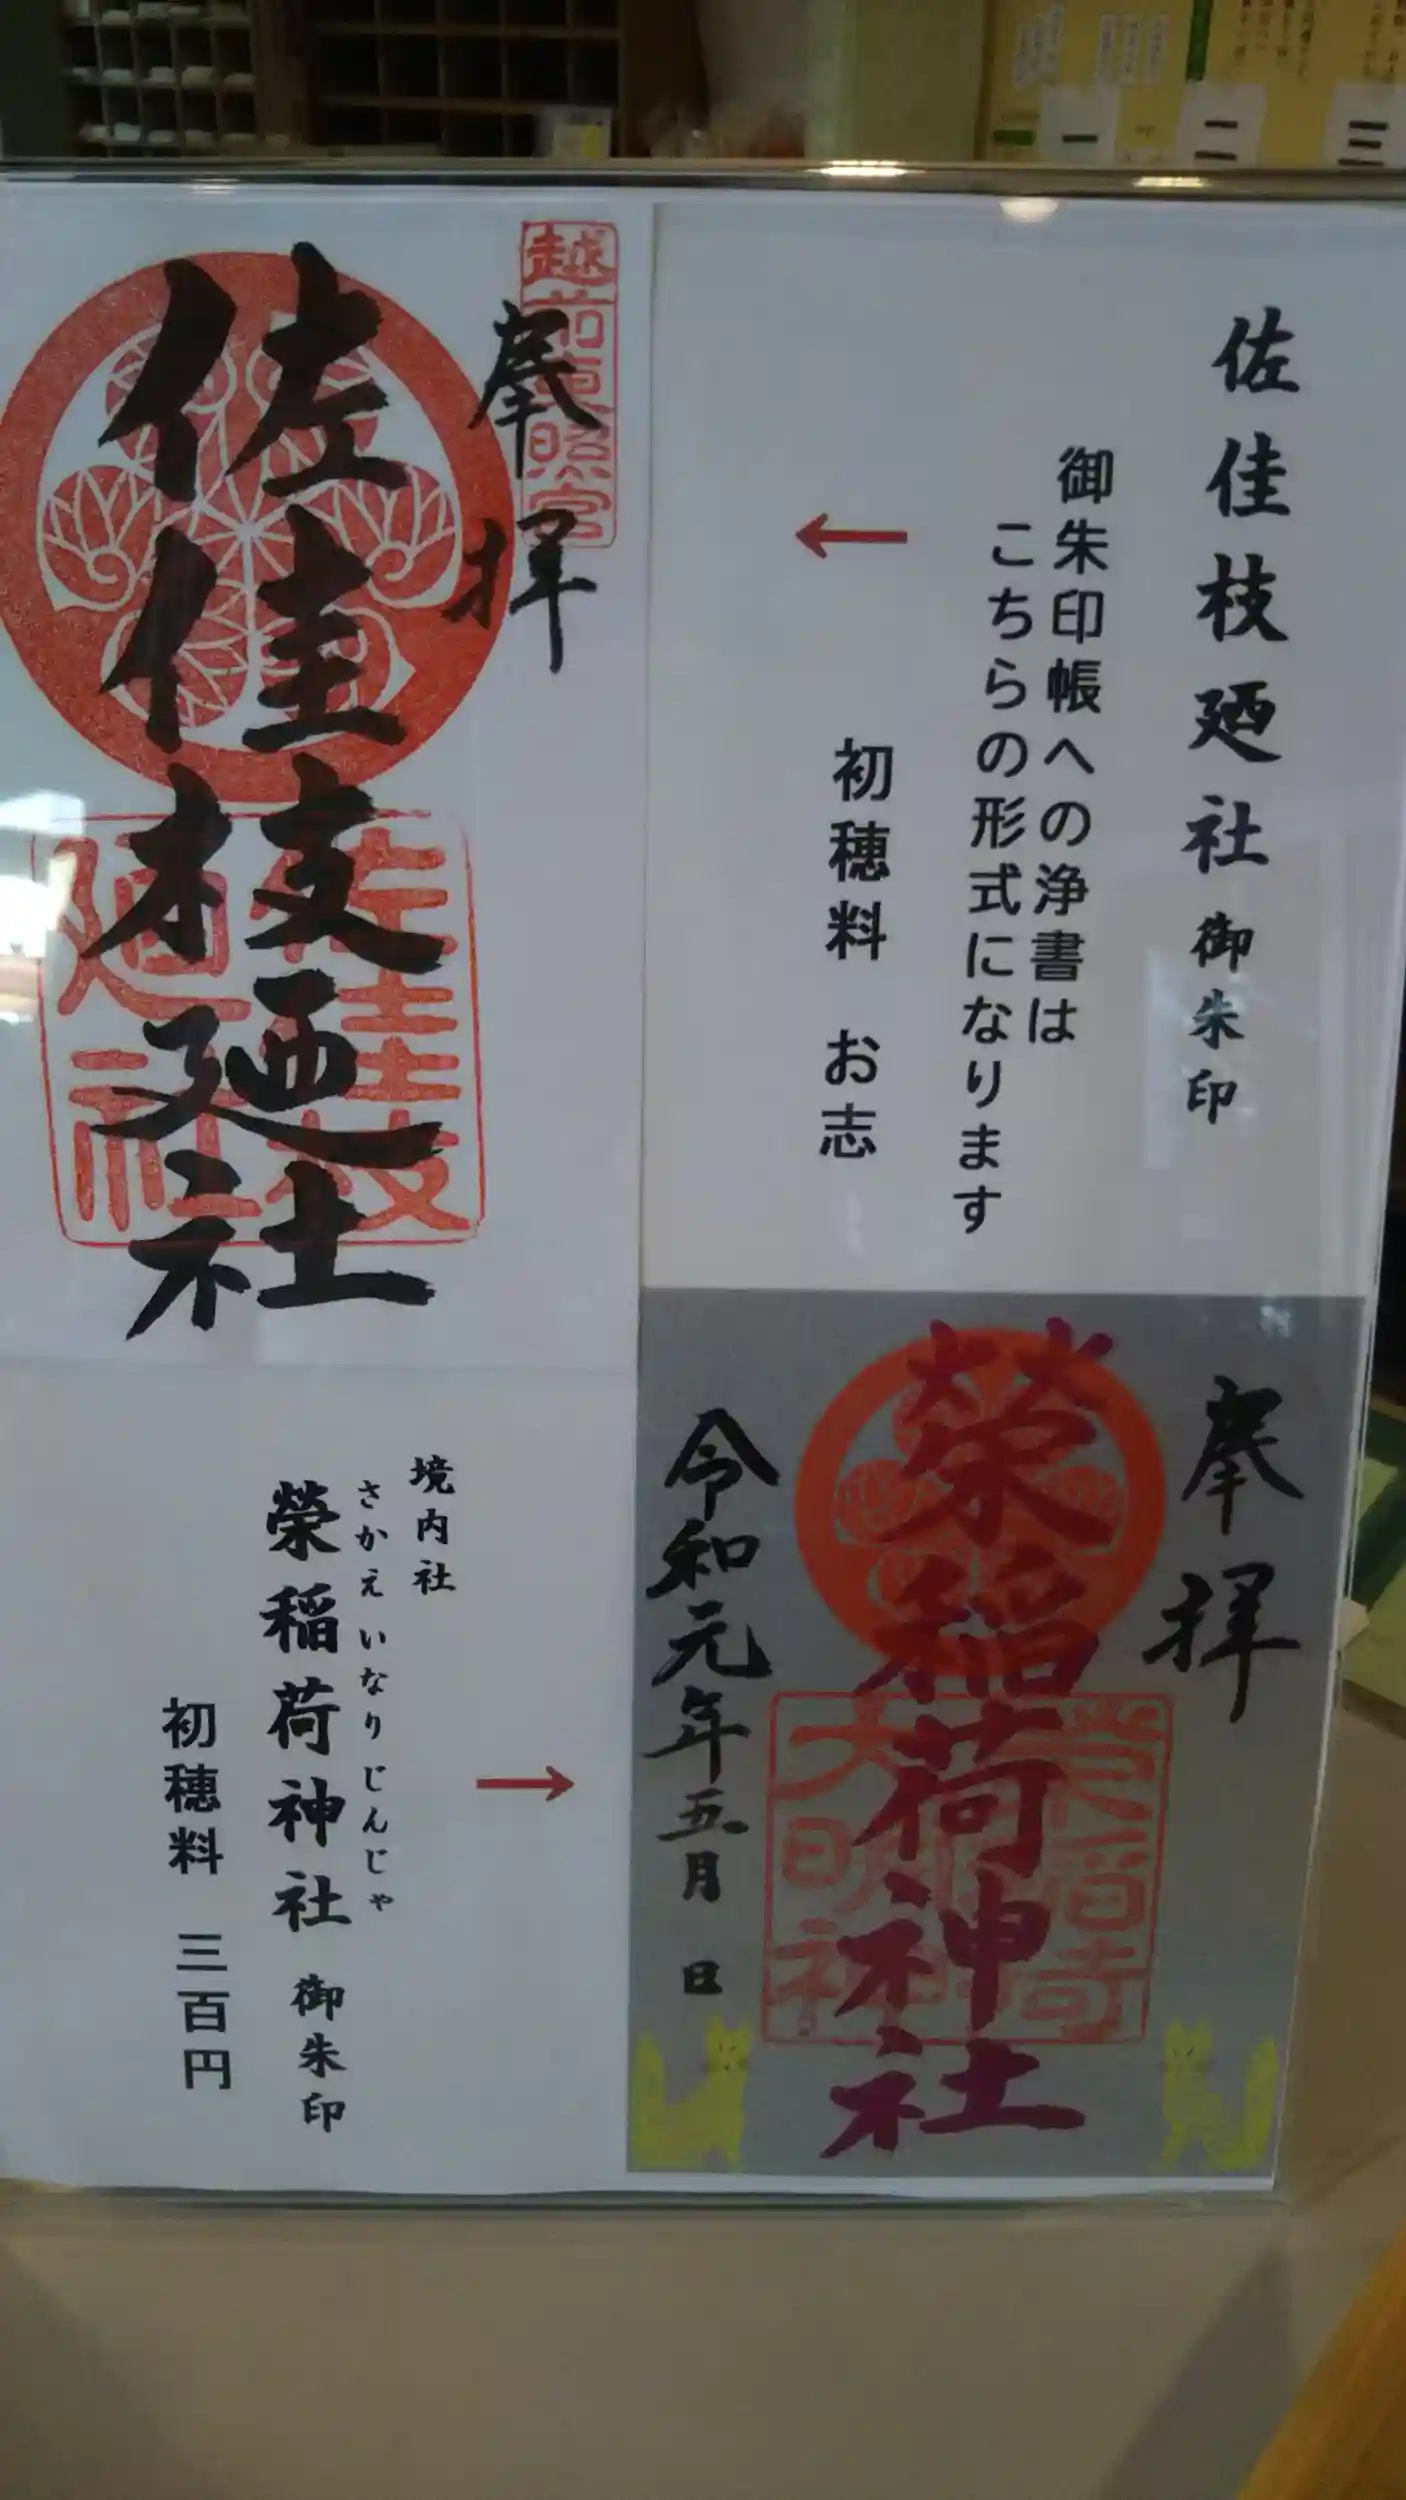 一
二
三
佐佳枝廼社 御朱印
御朱印帳への浄書は
こちらの形式になります
←
初穂料 お志
越前東照宮
奉拝
佐佳枝廼社
佐佳枝
廼社
奉拝
榮稲荷神社
大明神
令和元年五月 日
境内社
さかえいなりじんじゃ
榮稲荷神社 御朱印
初穂料 三百円
→